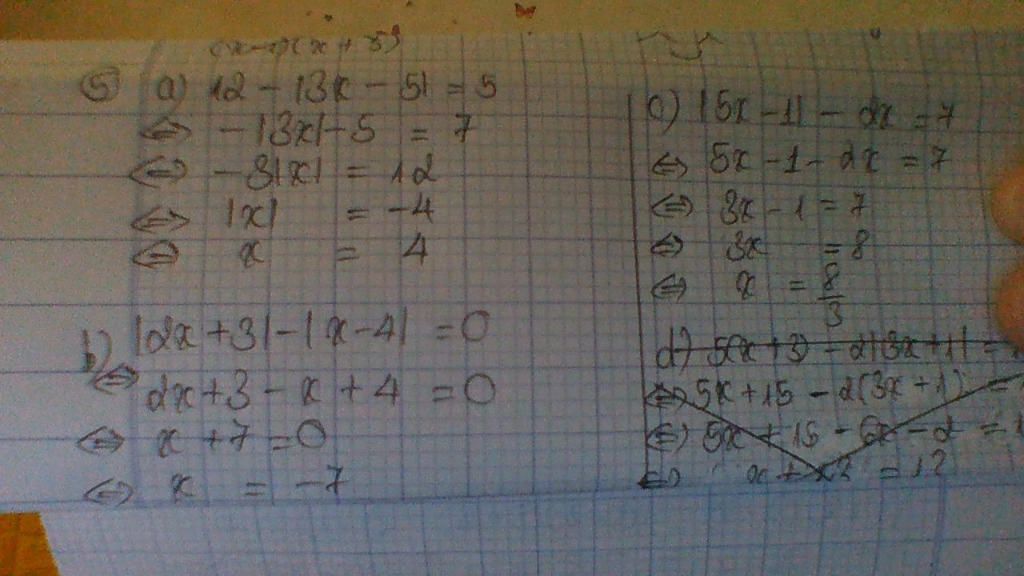 (x-1)(x+5)
5 a) 12 - |3x - 5| = 5
⇔ -|3x| - 5 = 7
⇔ -3|x| = 12
⇔ |x| = -4
⇔ x = 4
b) |2x + 3| - |x - 4| = 0
⇔ 2x + 3 - x + 4 = 0
⇔ x + 7 = 0
⇔ x = -7
c) |5x - 1| - 2x = 7
⇔ 5x - 1 - 2x = 7
⇔ 3x - 1 = 7
⇔ 3x = 8
⇔ x = 8/3
d) 5(x + 3) - 2|3x + 1| =
⇔ 5x + 15 - 2(3x + 1) =
⇔ 5x + 15 - 6x - 2 =
⇔ = 12